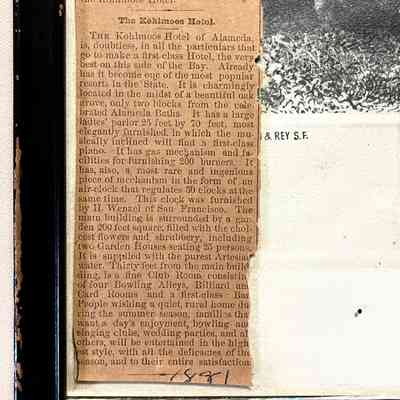 the Kohlmoos Hotel.
The Kohlmoos Hotel.
THE Kohlmoos Hotel of Alameda,
is, doubtless, in all the particulars that
go to make a first-class Hotel, the very
best on this side of the Bay. Already
has it become one of the most popular
resorts in the State. It is charmingly
located in the midst of a beautiful oak
grove, only two blocks from the cele-
brated Alameda Baths. It has a large
ladies' parlor 25 feet by 70 feet, most
elegantly furnished, in which the mu-
sically inclined will find a first-class
piano. It has gas mechanism and fa-
cilities for furnishing 200 burners. It
has, also, a most rare and ingenious
piece of mechanism in the form of an
air-clock that regulates 50 clocks at the
same time. This clock was furnished
by H. Wenzel of San Francisco. The
main building is surrounded by a gar-
den 200 feet square, filled with the choi-
cest flowers and shrubbery, including
two Garden Houses seating 25 persons.
It is supplied with the purest Artesian
water. Thirty feet from the main buil-
ding, is a fine Club Room, consisting
of four Bowling Alleys, Billiard and
Card Rooms and a first-class Bar.
People wishing a quiet, rural home du-
ring the summer season, families that
want a day's enjoyment, bowling and
singing clubs, wedding parties, and all
others, will be entertained in the high-
est style, with all the delicacies of the
season, and to their entire satisfaction
1881
& REY S.F.